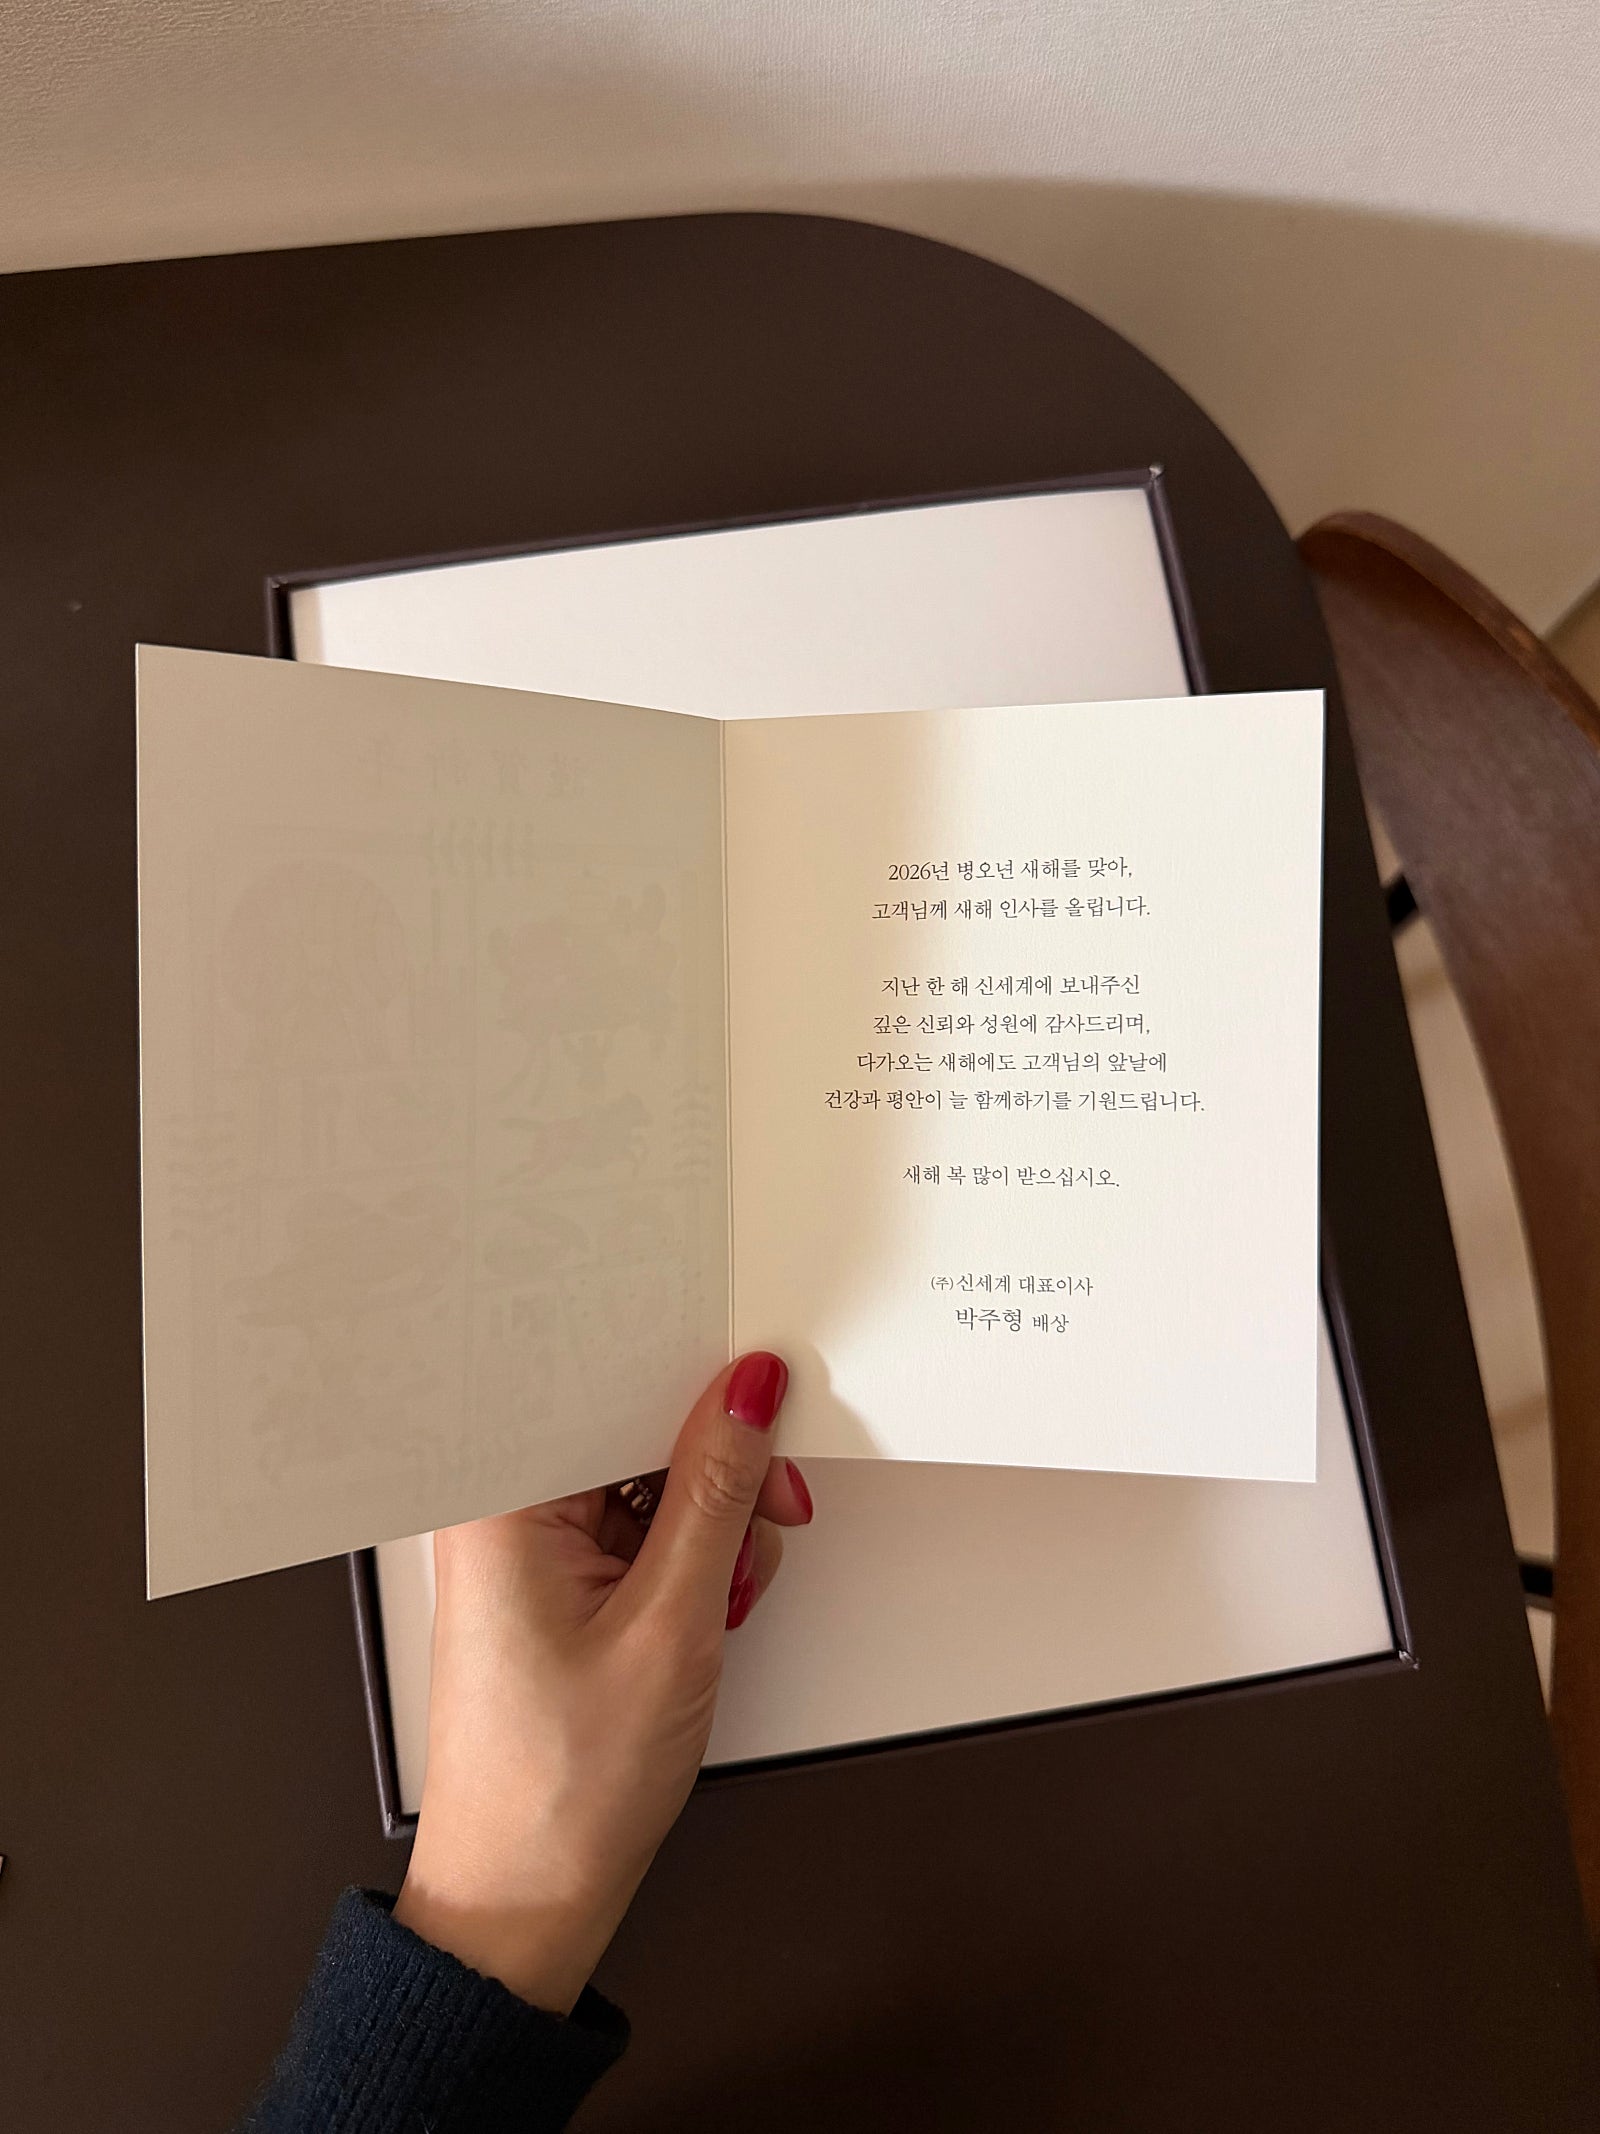 謹賀新年
2026년 병오년 새해를 맞아,
고객님께 새해 인사를 올립니다.
지난 한 해 신세계에 보내주신
깊은 신뢰와 성원에 감사드리며,
다가오는 새해에도 고객님의 앞날에
건강과 평안이 늘 함께하기를 기원드립니다.
새해 복 많이 받으십시오.
(주)신세계 대표이사
박주형 배상